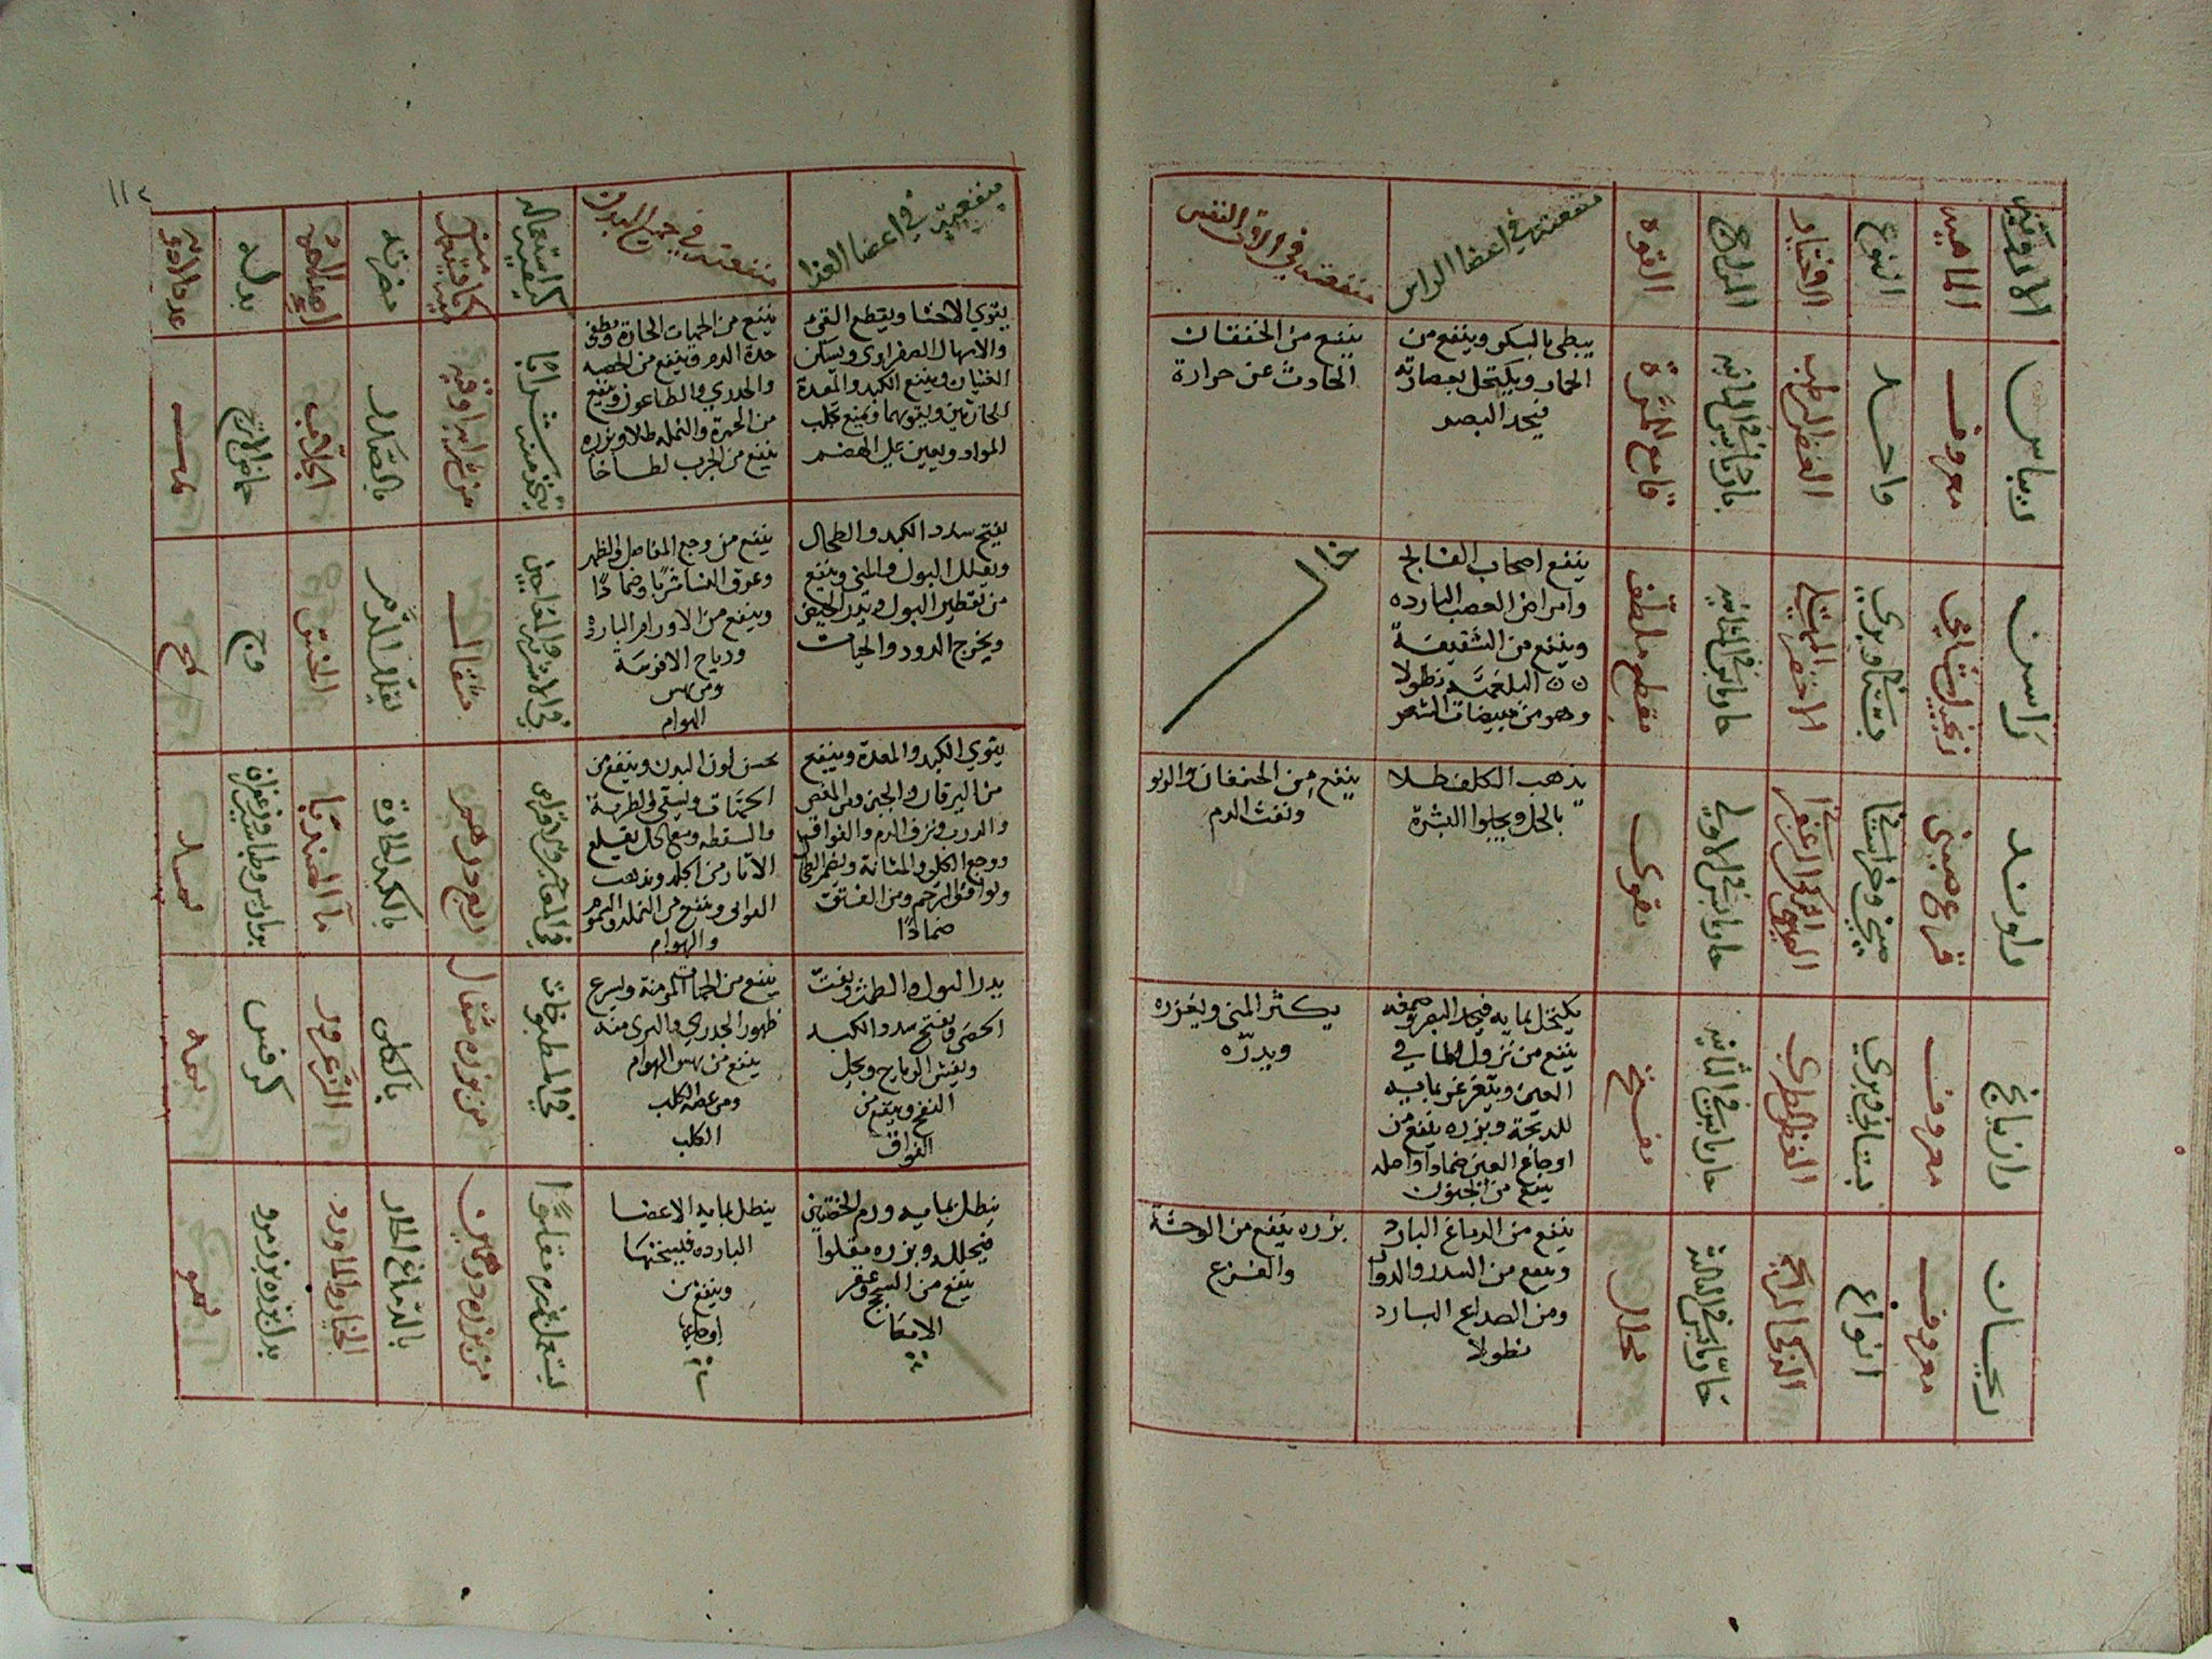 الادوية
الماهية
النوع
الاختيار
المزاج
القوة
منفعته في اعضا الراس
منفعته في الات النفس
ريباس
معروف
واحد
الغض الرطب
بارد يابس في الثانية
قامع للمرة
يبطي بالسكر وينفع من
الخمار ويكتحل بعصارته
فيحد البصر
ينفع من الخفقان
الحادث عن حرارة
راسن
زنجبيل شامي
بستاني وبري
الاخضر الممتلي
حار يابس في الثانية
مقطع ملطف
ينفع اصحاب الفالج
وامراض العصب الباردة
وينفع من الشقيقة
البلغمية نطولا
وهو من مبيضات الشعر
خال
راوند
صيني وخراساني
حار يابس في الاولى
مقوي
يذهب الكلف طلا
بالخل ويجلوا البشرة
ينفع من الخفقان والربو
ونفث الدم
رازيانج
معروف
بستاني وبري
الغض الطري
حار يابس في الثانية
مفتح
يكتحل بمايه فيحد البصر وصمغه
ينفع من نزول الما في
العين ويتغرغر بمايه
للذبحة وبزره ينفع من
اوجاع العين ضمادا واصله
ينفع من الجنون
يكثر المني ويغزره
ويدره
ريحان
معروف
انواع
الذكي الرايحة
حار يابس في الثالثة
محلل
ينفع من الدماغ البارد
وينفع من السدر والدوار
ومن الصداع البارد
نطولا
بزره ينفع من الوحشة
والفزع
١١٢
منفعته في اعضا الغذا
منفعته في جميع البدن
كيفية استعماله
كمية ما يستعمل منه
مضرته
اصلاحه
بدله
عدد الادوية
يقوي الاحشا ويقطع القي
والاسهال الصفراوي ويسكن
الغثيان وينفع الكبد والمعدة
الحارتين ويقويهما ويمنع تحلب
المواد ويعين علي الهضم
ينفع من الحميات الحارة ويطفي
حدة الدم وينفع من الحصبة
والجدري والطاعون وينفع
من الحمرة والنملة طلا وبزره
ينفع من الجرب لطاخا
يتخذ منه شرابا
من شرابه اوقية
بالصدر
الجلاب
حماض الاترج
يفتح سدد الكبد والطحال
ويقلل البول والمني وينفع
من تقطير البول ويدر الحيض
ويخرج الدود والحيات
ينفع من وجع المفاصل والظهر
وعرق النسا شربا وضمادا
وينفع من الاورام الباردة
ورياح الافرسة
ومن نهش
الهوام
في الاشربة والمعاجين
مثقال
يقلل الدم
الخشخاش
وج
يقوي الكبد والمعدة وينفع
من اليرقان والجبن ومن المغص
والذرب ونزف الدم والفواق
ووجع الكلي والمثانة ويضمر الطحال
ويوافق الرحم ومن الفتق
ضمادا
يحسن لون البدن وينفع من
الحميات ويسقي للضربة
والسقطة ومع خل يقلع
الاثار من الجلد ويذهب
القوابي وينفع من النملة والسموم
والهوام
في المعاجين والاقراص
اربع دراهم
بالكبد الحارة
ما الهندبا
يدر البول والطمث ويفتت
الحصي ويفتح سدد الكبد
ويفش الرياح ويحل
النفخ وينفع من
الفواق
ينفع من الحميات المزمنة ويسرع
ظهور الجدري والبري منه
ينفع من نهش الهوام
ومن عضة الكلب
الكلب
في المطبوخات
من بزره مثقال
بالكلي
الزعرور
كرفس
ينطل بمايه ورم الخصيتين
فيحلله وبزره مقلوا
ينفع من السحج وعقر
الامعا
ينطل بمايه الاعضا
الباردة فيسخنها
وينفع من
اوجاعها
يستعمل بزره مقلوا
من بزره درهمين
بالدماغ الحار
الخيار والماورد
بدل بزره بزر مرو